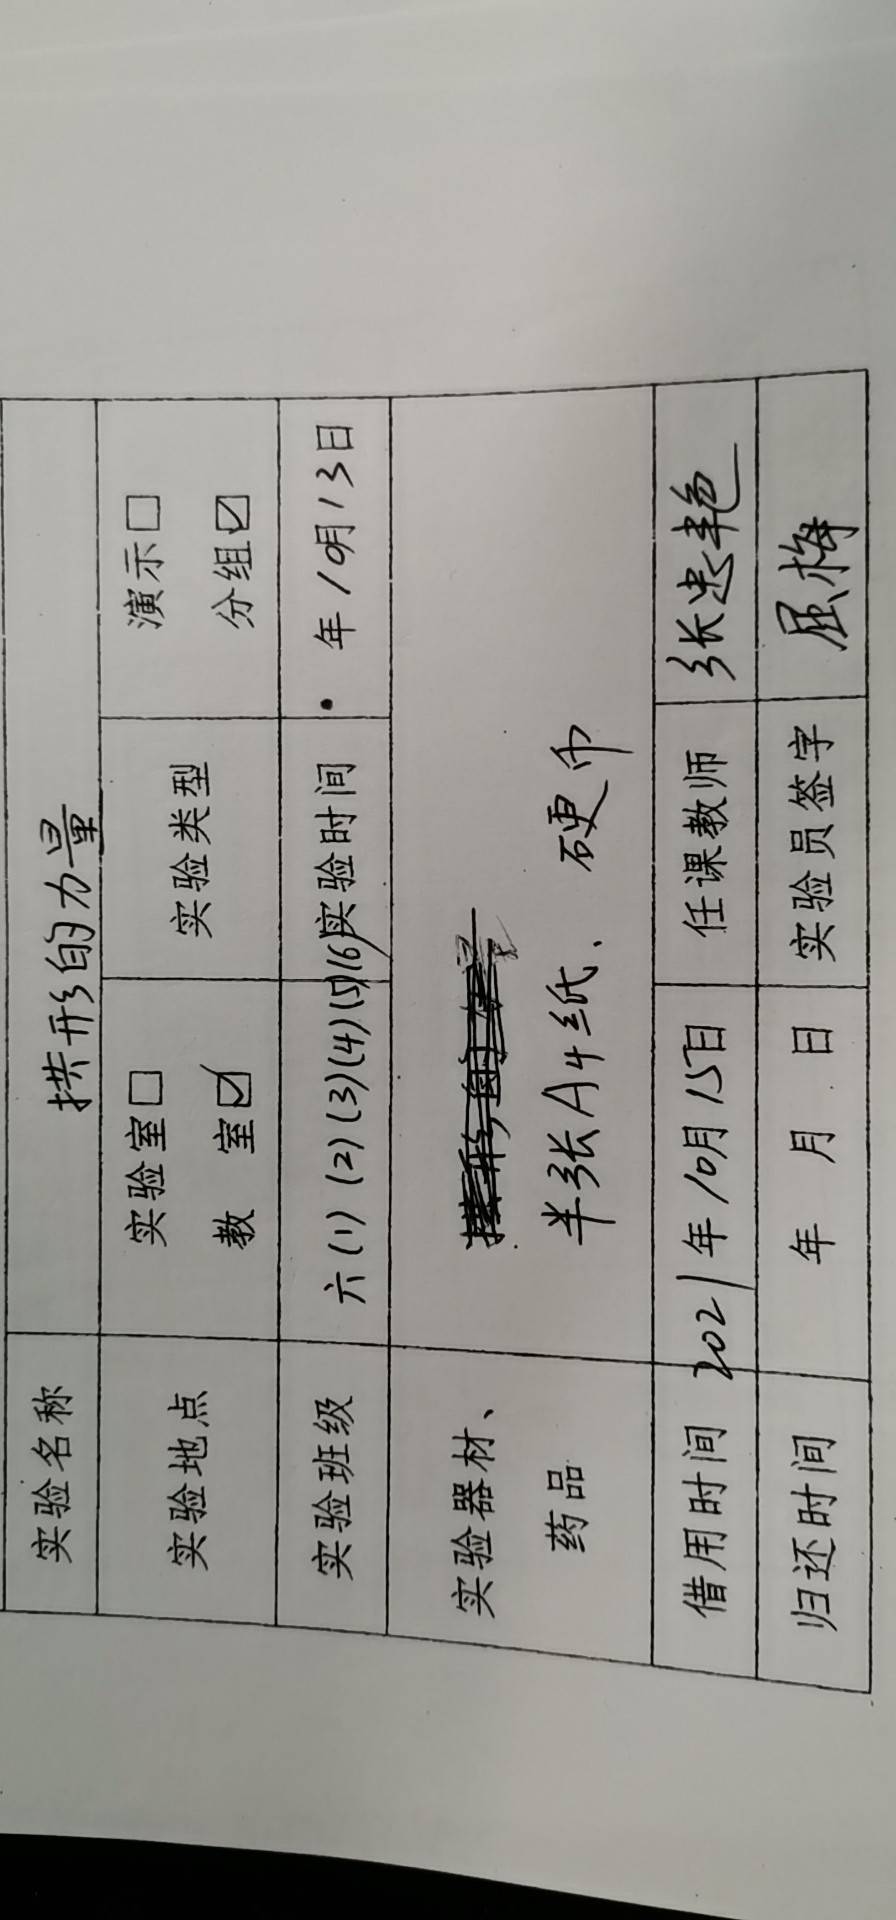 实验名称 拱形的力量
实验地点 实验室□ 实验类型 演示□
教 室☑ 分组☑
实验班级 六(1)(2)(3)(4)(5)(6) 实验时间 年10月13日
实验器材、
药品 半张A4纸、硬币
借用时间 2021年10月15日 任课教师 张忠艳
归还时间 年 月 日 实验员签字 屈梅